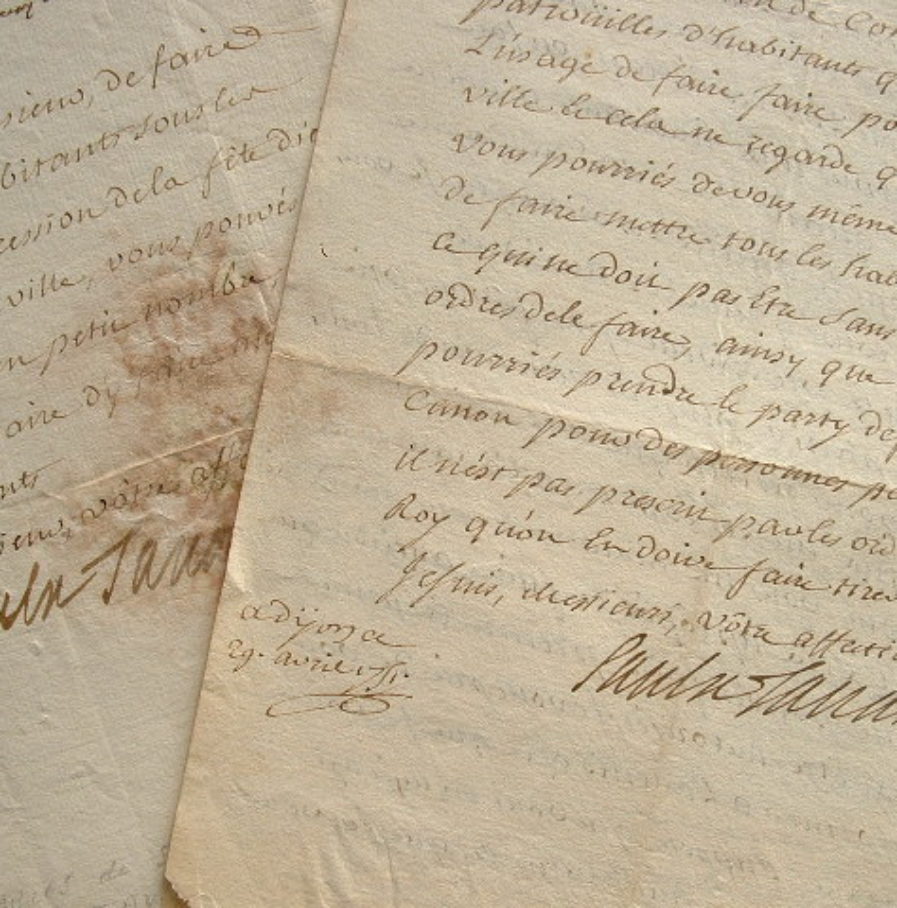 sieur, de faire
bitants sous les
cession de la fête di
ville, vous pouvés
n petit nombre
aire d'y faire
nts
sieur, vôtre aff
de Cor
patroüilles d'habitants q
L'usage de faire faire po
ville le cela ne regarde q
vous pourriés de vous même
de faire mettre tous les hab
ce qui ne doit pas Etre sans
ordres de le faire, ainsy que
pourriés prendre le party de
Canon pour des personnes p
il n'est pas prescrit par les ord
Roy qu'on En doive faire tirer
Je suis, Messieurs, vôtre affecti
a dijon ce
29. avril
Saulx Tavan
ulx Tava